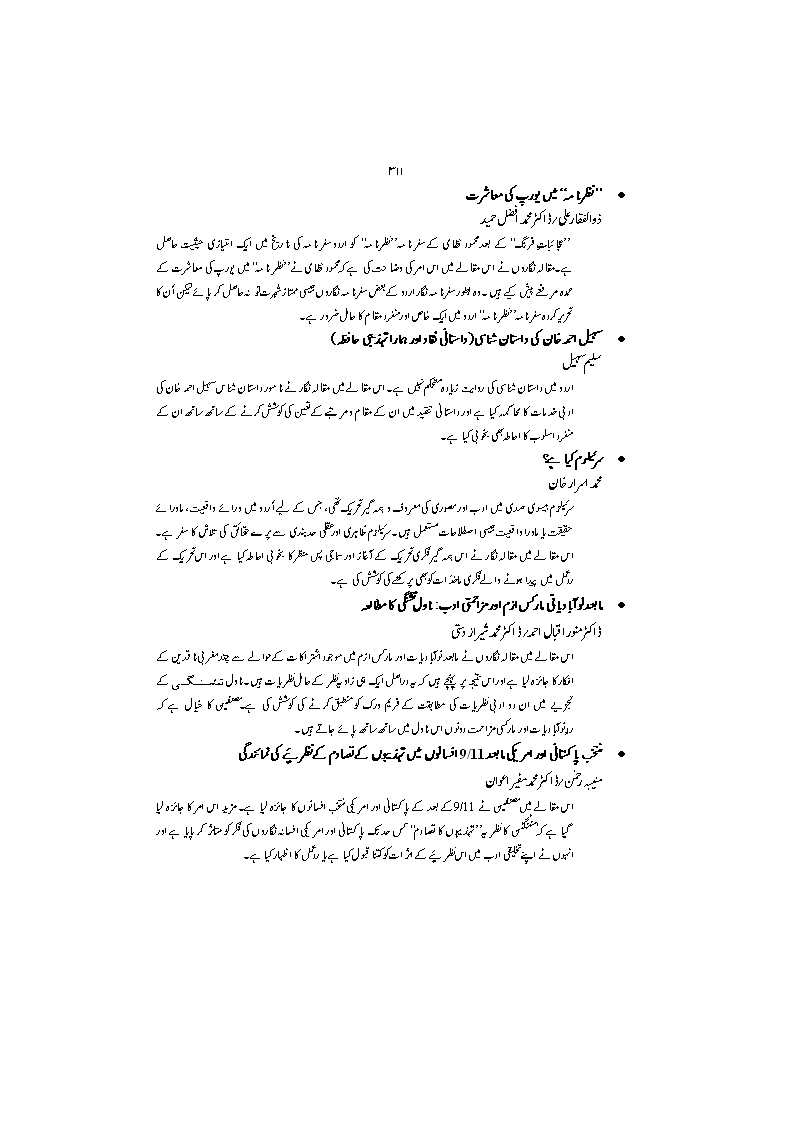 ۳۱۱
• ’’نظرنامہ‘‘ میں یورپ کی معاشرت
ذوالفقار علی/ڈاکٹر محمد افضل حمید
’’عجائباتِ فرنگ‘‘ کے بعد محمود نظامی کے سفرنامہ ’’نظرنامہ‘‘ کو اردو سفرنامہ کی تاریخ میں ایک امتیازی حیثیت حاصل
ہے۔ مقالہ نگاروں نے اس مقالے میں اس امر کی وضاحت کی ہے کہ محمود نظامی نے ’’نظرنامہ‘‘ میں یورپ کی معاشرت کے
عمدہ مرقعے پیش کیے ہیں۔ وہ بطور سفرنامہ نگار اردو کے بعض سفرنامہ نگاروں جیسی ممتاز شہرت تو نہ حاصل کر پائے لیکن اُن کا
تحریر کردہ سفرنامہ ’’نظرنامہ‘‘ اردو میں ایک خاص اور منفرد مقام کا حامل ضرور ہے۔
• سہیل احمد خان کی داستان شناسی (داستانی نقاد اور ہمارا تہذیبی حافظہ)
سلیم سہیل
اردو میں داستان شناسی کی روایت زیادہ مستحکم نہیں ہے۔ اس مقالے میں مقالہ نگار نے نامور داستان شناس سہیل احمد خان کی
ادبی خدمات کا محاکمہ کیا ہے اور داستانی تنقید میں ان کے مقام و مرتبے کے تعین کی کوشش کرنے کے ساتھ ساتھ ان کے
منفرد اسلوب کا احاطہ بھی بخوبی کیا ہے۔
• سرئیلوم کیا ہے؟
محمد اسرار خان
سرئیلوم بیسوی صدی میں ادب اور مصوری کی معروف و ہمہ گیر تحریک تھی، جس کے لیے اُردو میں ورائے واقعیت، ماورائے
حقیقت یا ماورا واقعیت جیسی اصطلاحات مستعمل ہیں۔ سرئیلوم ظاہری اور عقلی حد بندی سے پرے حقائق کی تلاش کا سفر ہے۔
اس مقالے میں مقالہ نگار نے اس ہمہ گیر فکری تحریک کے آغاز اور سماجی پس منظر کا بخوبی احاطہ کیا ہے اور اس تحریک کے
ردِعمل میں پیدا ہونے والے فکری ماخذات کو بھی پرکھنے کی کوشش کی ہے۔
• مابعد نوآبادیاتی مارکس ازم اور مزاحمتی ادب: ناول تشنگی کا مطالعہ
ڈاکٹر منور اقبال احمد/ ڈاکٹر محمد شیراز دستی
اس مقالے میں مقالہ نگاروں نے مابعد نوآبادیات اور مارکس ازم میں موجود اشتراکات کے حوالے سے چند مغربی ناقدین کے
افکار کا جائزہ لیا ہے اور اس نتیجہ پر پہنچے ہیں کہ یہ دراصل ایک ہی زاویۂ نظر کے حامل نظریات ہیں۔ ناول تشنگی کے
تجزیے میں ان دو ادبی نظریات کی مطابقت کے فریم ورک کو منطبق کرنے کی کوشش کی ہے۔ مصنفین کا خیال ہے کہ
ردِنوآبادیات اور مارکسی مزاحمت دونوں اس ناول میں ساتھ ساتھ پائے جاتے ہیں۔
• منتخب پاکستانی اور امریکی مابعد 9/11 افسانوں میں تہذیبوں کے تصادم کے نظریے کی نمائندگی
منیبہ رحمٰن/ڈاکٹر محمد سفیر اعوان
اس مقالے میں مصنفین نے 9/11 کے بعد کے پاکستانی اور امریکی منتخب افسانوں کا جائزہ لیا ہے۔ مزید اس امر کا جائزہ لیا
گیا ہے کہ ہنٹنگٹن کا نظریہ ’’تہذیبوں کا تصادم‘‘ کس حد تک پاکستانی اور امریکی افسانہ نگاروں کی فکر کو متاثر کر پایا ہے اور
انہوں نے اپنے تخلیقی ادب میں اس نظریے کے اثرات کو کتنا قبول کیا ہے یا ردِعمل کا اظہار کیا ہے۔